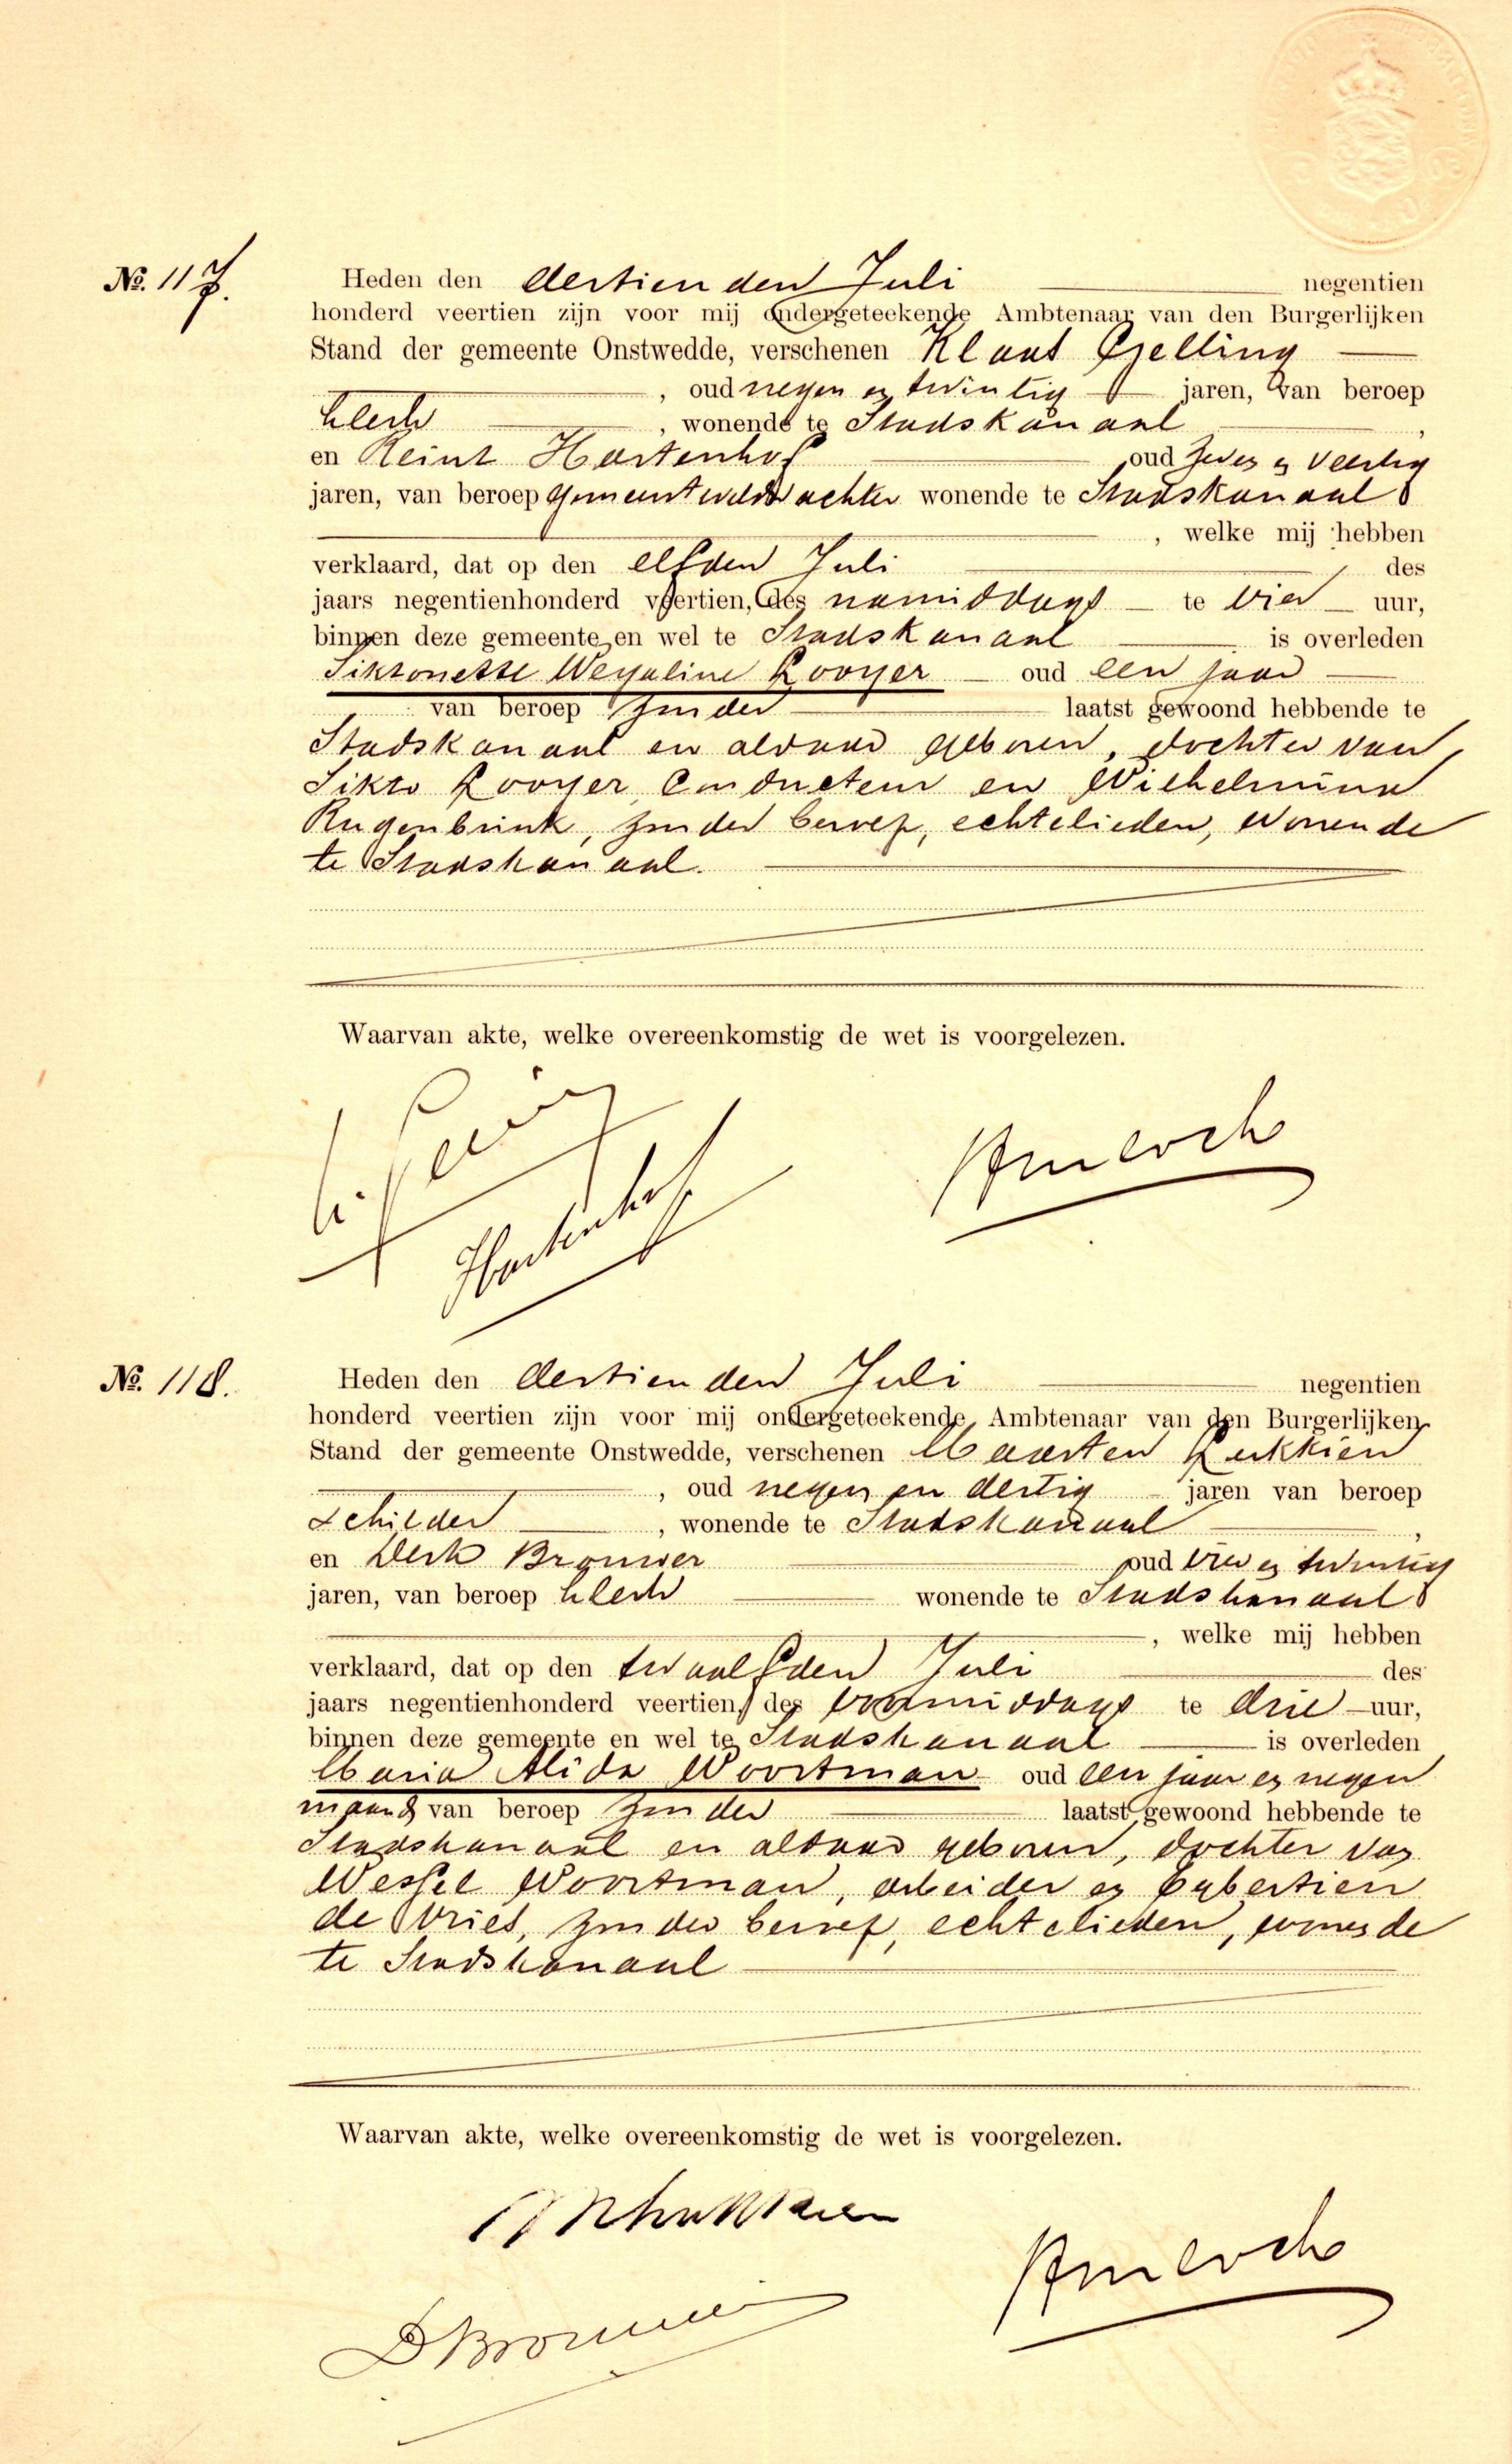 No. 117.
Heden den dertienden Juli negentien
honderd veertien zijn voor mij ondergeteekende Ambtenaar van den Burgerlijken
Stand der gemeente Onstwedde, verschenen Klaas Gelling
, oud negen en twintig jaren, van beroep
klerk , wonende te Stadskanaal ,
en Reint Hartenhof oud zeven en veertig
jaren, van beroep gemeenteveldwachter wonende te Stadskanaal
, welke mij hebben
verklaard, dat op den elfden Juli des
jaars negentienhonderd veertien, des namiddags te vier uur,
binnen deze gemeente en wel te Stadskanaal is overleden
Siktonette Weyaline Rooyer oud een jaar
van beroep zonder laatst gewoond hebbende te
Stadskanaal en aldaar geboren, dochter van
Sikto Rooyer, conducteur en Wilhelmina
Rugenbrink, zonder beroep, echtelieden, wonende
te Stadskanaal.
Waarvan akte, welke overeenkomstig de wet is voorgelezen.
Hartenhof
No. 118.
Heden den dertienden Juli negentien
honderd veertien zijn voor mij ondergeteekende Ambtenaar van den Burgerlijken
Stand der gemeente Onstwedde, verschenen Maarten Rukkien
, oud negen en dertig jaren van beroep
schilder , wonende te Stadskanaal ,
en Derk Brouwer oud vier en twintig
jaren, van beroep klerk wonende te Stadskanaal
, welke mij hebben
verklaard, dat op den twaalfden Juli des
jaars negentienhonderd veertien, des voormiddags te drie uur,
binnen deze gemeente en wel te Stadskanaal is overleden
Maria Alida Woortman oud een jaar en negen
maand van beroep zonder laatst gewoond hebbende te
Stadskanaal en aldaar geboren, dochter van
Wessel Woortman, arbeider en Egbertien
de Vries, zonder beroep, echtelieden, wonende
te Stadskanaal
Waarvan akte, welke overeenkomstig de wet is voorgelezen.
D Brouwer